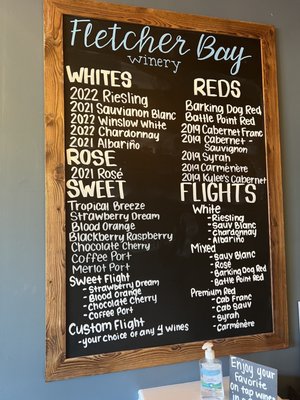 Fletcher Bay
winery
WHITES
2022 Riesling
2021 Sauvianon Blanc
2022 Winslow White
2022 Chardonnay
2021 Albariño
ROSE
2021 Rosé
SWEET
Tropical Breeze
Strawberry Dream
Blood Orange
Blackberry Raspberry
Chocolate Cherry
Coffee Port
Merlot Port
Sweet Flight
- Strawberry Dream
- Blood Orange
- Chocolate Cherry
- Coffee Port
Custom Flight
- your choice of any 4 wines
REDS
Barking Dog Red
Battle Point Red
2019 Cabernet Franc
2019 Cabernet -
Sauvignon
2019 Syrah
2019 Carmènère
2019 Kylee's Cabernet
FLIGHTS
White
- Riesling
- Sauv Blanc
- Chardonnay
- Albariño
Mixed
- Sauv Blanc
- Rosé
- Barking Dog Red
- Battle Point Red
Premium Red
- Cab Franc
- Cab Sauv
- Syrah
- Carmènère
Enjoy your
favorite
on tap wines